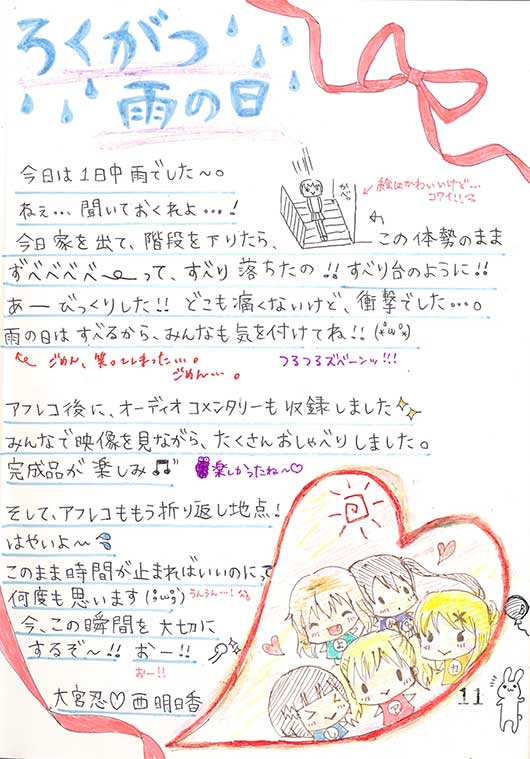 ろくがつ
雨の日
今日は1日中雨でした〜。
ねぇ…、聞いておくれよ…!
絵はかわいいけど…
コワイ!!
今日家を出て、階段を下りたら、
この体勢のまま
ずべべべべ〜って、すべり落ちたの!!すべり台のように!!
あーびっくりした!!どこも痛くないけど、衝撃でした…。
雨の日はすべるから、みんなも気を付けてね!!
ごめん、笑ってしまった…。
ごめん…。
つるつるズベーンッ!!!
アフレコ後に、オーディオコメンタリーも収録しました
みんなで映像を見ながら、たくさんおしゃべりしました。
完成品が楽しみ♫
楽しかったね〜♡
そして、アフレコももう折り返し地点!
はやいよ〜
このまま時間が止まればいいのにって
何度も思います(;ω;)
うんうん…!
今、この瞬間を大切に
するぞ〜!!おー!!
おー!!
大宮忍♡西明日香
よ
カ
ア
し
11